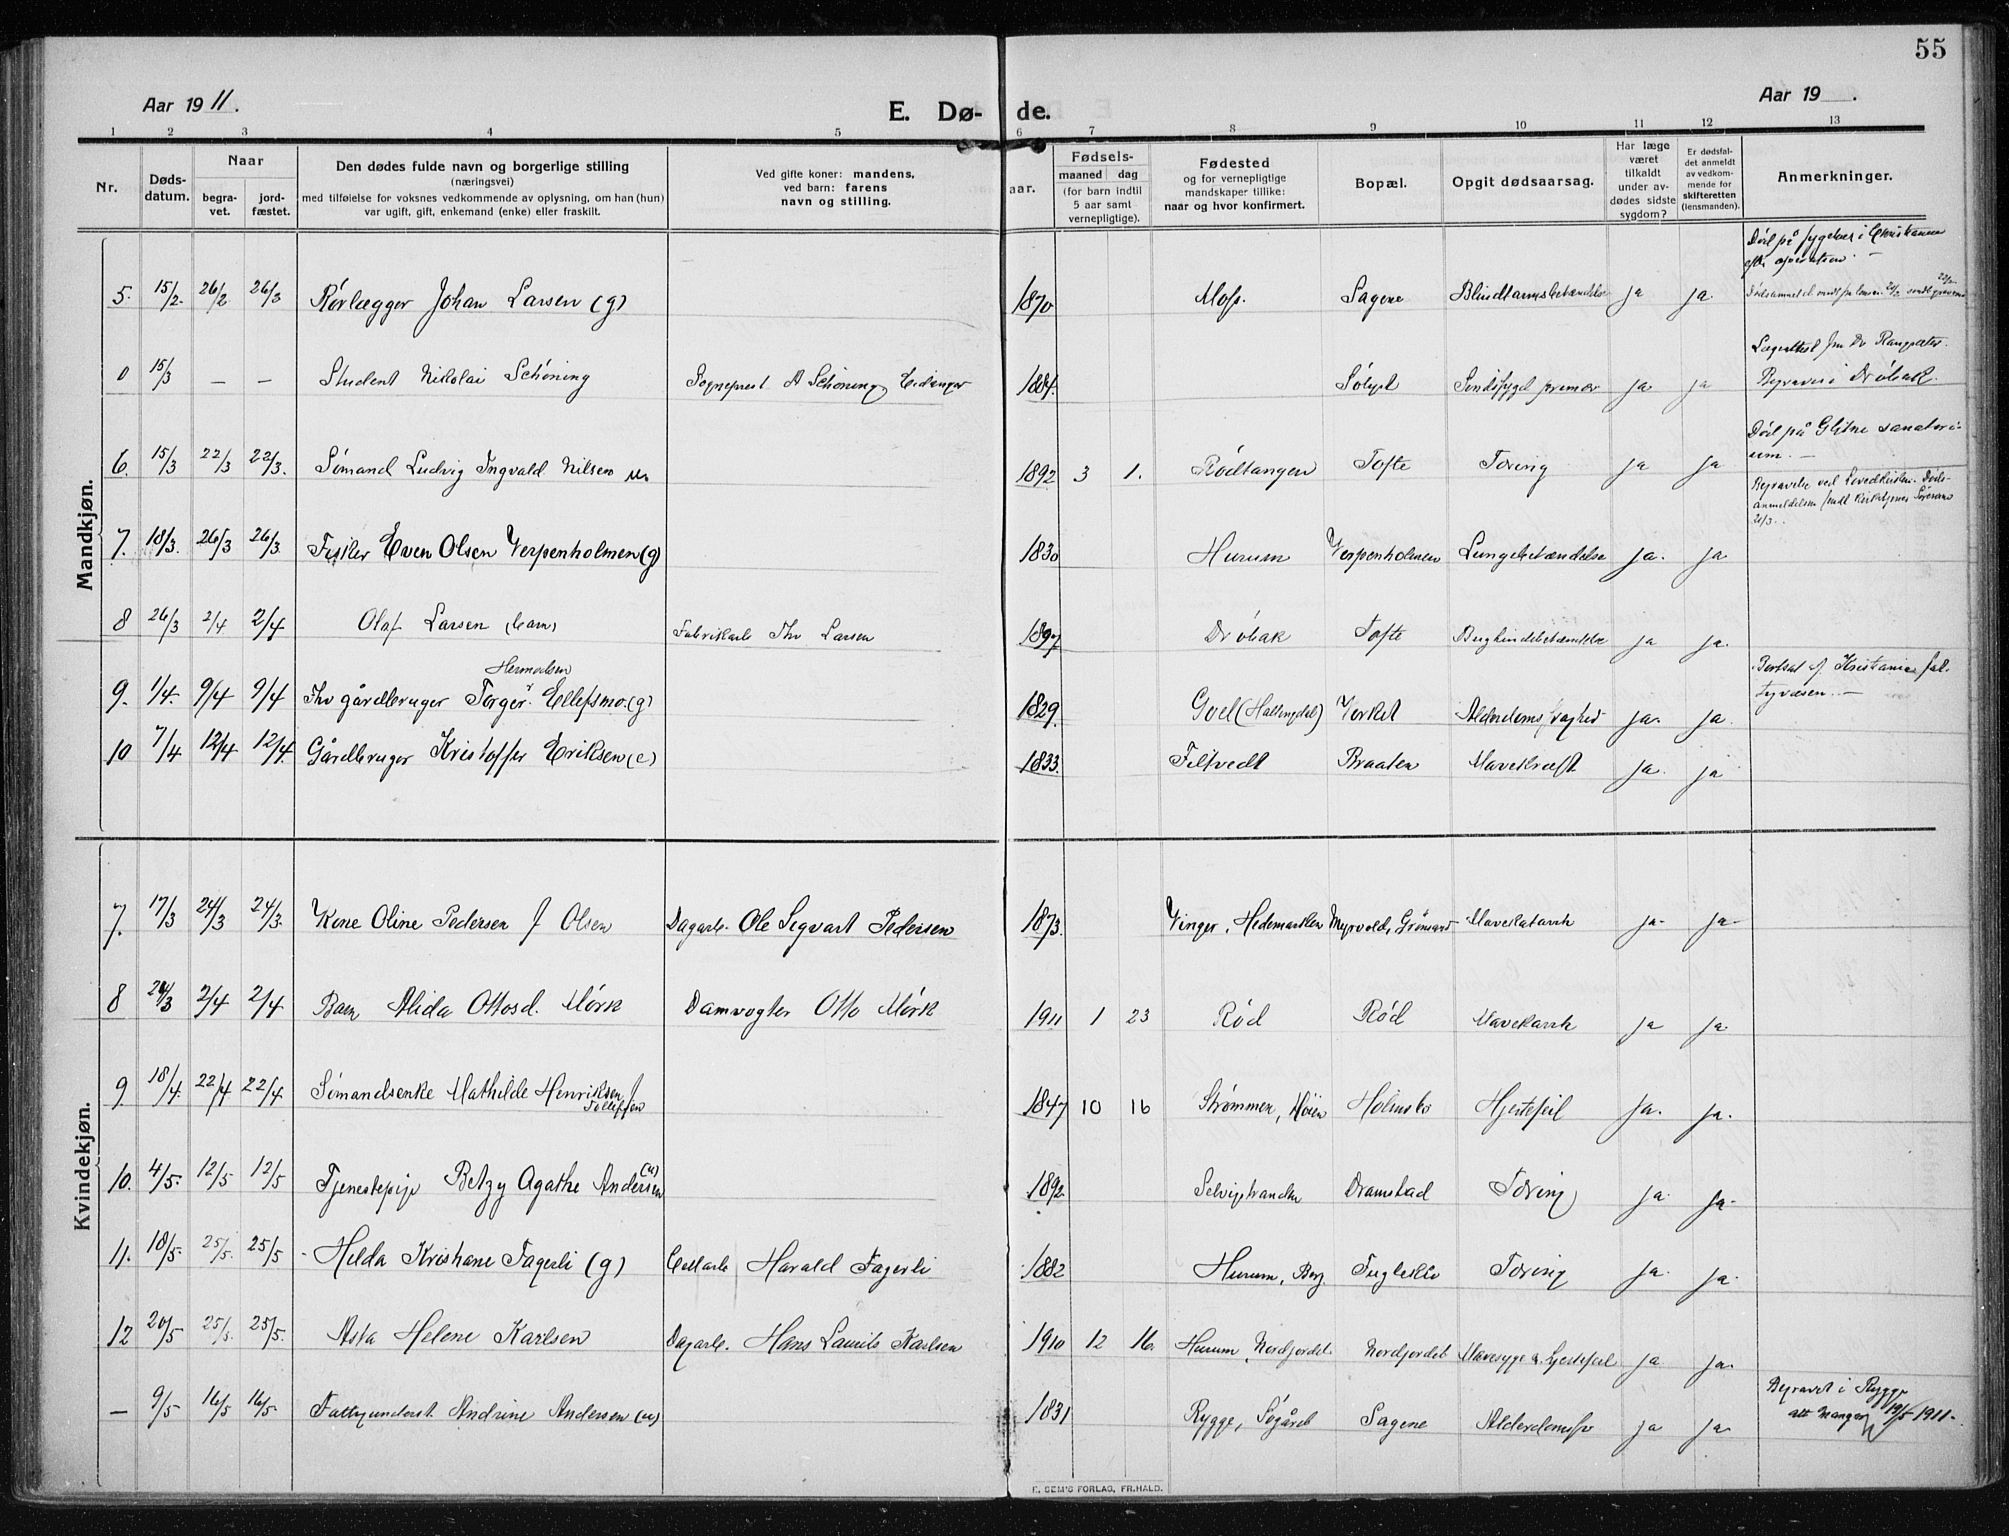 55
Aar 1911.
E. Dø- de.
Aar 19 .
1 2 3 4 5 6 7 8 9 10 11 12 13
Nr.
Døds-
datum.
Naar
begra-
vet.
jord-
fæstet.
Den dødes fulde navn og borgerlige stilling
(næringsvei)
med tilføielse for voksnes vedkommende av oplysning, om han (hun)
var ugift, gift, enkemand (enke) eller fraskilt.
Ved gifte koner: mandens,
ved barn: farens
navn og stilling.
aar.
Fødsels-
maaned dag
(for barn indtil
5 aar samt
vernepligtige).
Fødested
og for vernepligtige
mandskaper tillike:
naar og hvor konfirmert.
Bopæl.
Opgit dødsaarsag.
Har læge
været
tilkaldt
under av-
dødes sidste
sygdom?
Er dødsfal-
det anmeldt
av vedkom-
mende for
skifteretten
(lensmanden).
Anmerkninger.
Mandkjøn.
Død på sygehus i Christiania
efter operation. —
5. 15/2. 26/2 26/3 Rørlægger Johan Larsen (g) 1870 Sagene ja ja.
0 15/3 — — Student Nikolai Schøning Sogneprest A Schøning Eidanger 1884. ja ja
Begraves i Drøbak.
Død på Glitne sanatori-
um. —
6. 15/3 22/3 22/3. Sømand Ludvig Ingvald Nilsen 1892 3 1. Rødtangen Tofte Tæring ja ja
7. 18/3. 26/3 26/3. Fisker Even Olsen Verpenholmen (g) 1830 Hurum Verpenholmen Lungebetændelse ja. ja
8 26/3 2/4 2/4 Olaf Larsen (barn) Fabrikarb Thv Larsen 1897 Drøbak Tofte Bughindebetændelse ja ja.
Hermodsen
9. 1/4. 9/4 9/4 Fhv gårdbruger Torger Ellefsmo (g) 1829. Goel (Hallingdal) Verket Alderdomssvaghed ja. ja.
10 7/4 12/4 12/4. Gårdbruger Kristoffer Eriksen (e) 1833. Filtvedt Braaten Mavekræft ja. ja
Kvindekjøn.
7. 17/3 24/3 24/3. Kone Oline Pedersen f Olsen Dagarb. Ole Segvart Pedersen 1873. Vinger, Hedemarken Myrvold, Grønsand Mavekatarrh ja. ja.
8 24/3 2/4 2/4 Barn Alida Ottosd. Mørk Damvogter Otto Mørk 1911 1 23 Rød Rød ja ja.
9 18/4. 22/4 22/4 Sømandsenke Mathilde Henriksen f
Tollefsen 1847 10 16 Strømmen, Holmsbo Hjertefeil ja. ja.
10. 4/5. 12/5 12/5 Tjenestepige Betzy Agathe Andersen (u) 1892. Selvigstranden Dramstad Tæring ja. ja.
11. 18/5. 25/5. 25/5 Helda Kristiane Fagerli (g) Harald Fagerli 1882 Hurum, Berg. Fugleliv Tæring ja. ja.
12 20/5 25/5. 25/5. Asta Helene Karlsen Dagarb. Hans Laurits Karlsen 1910 12 16. Hurum, Nordjordet Nordjordet Mavesyge & hjertefeil ja ja.
— 9/5 16/5 16/5. Fattigunderst. Andrine Andersen (u) 1831 Rygge, Søgård Sagene ja ja.
Begravet i Rygge
19/5 1911.
E. SEM'S FORLAG, FR.HALD.